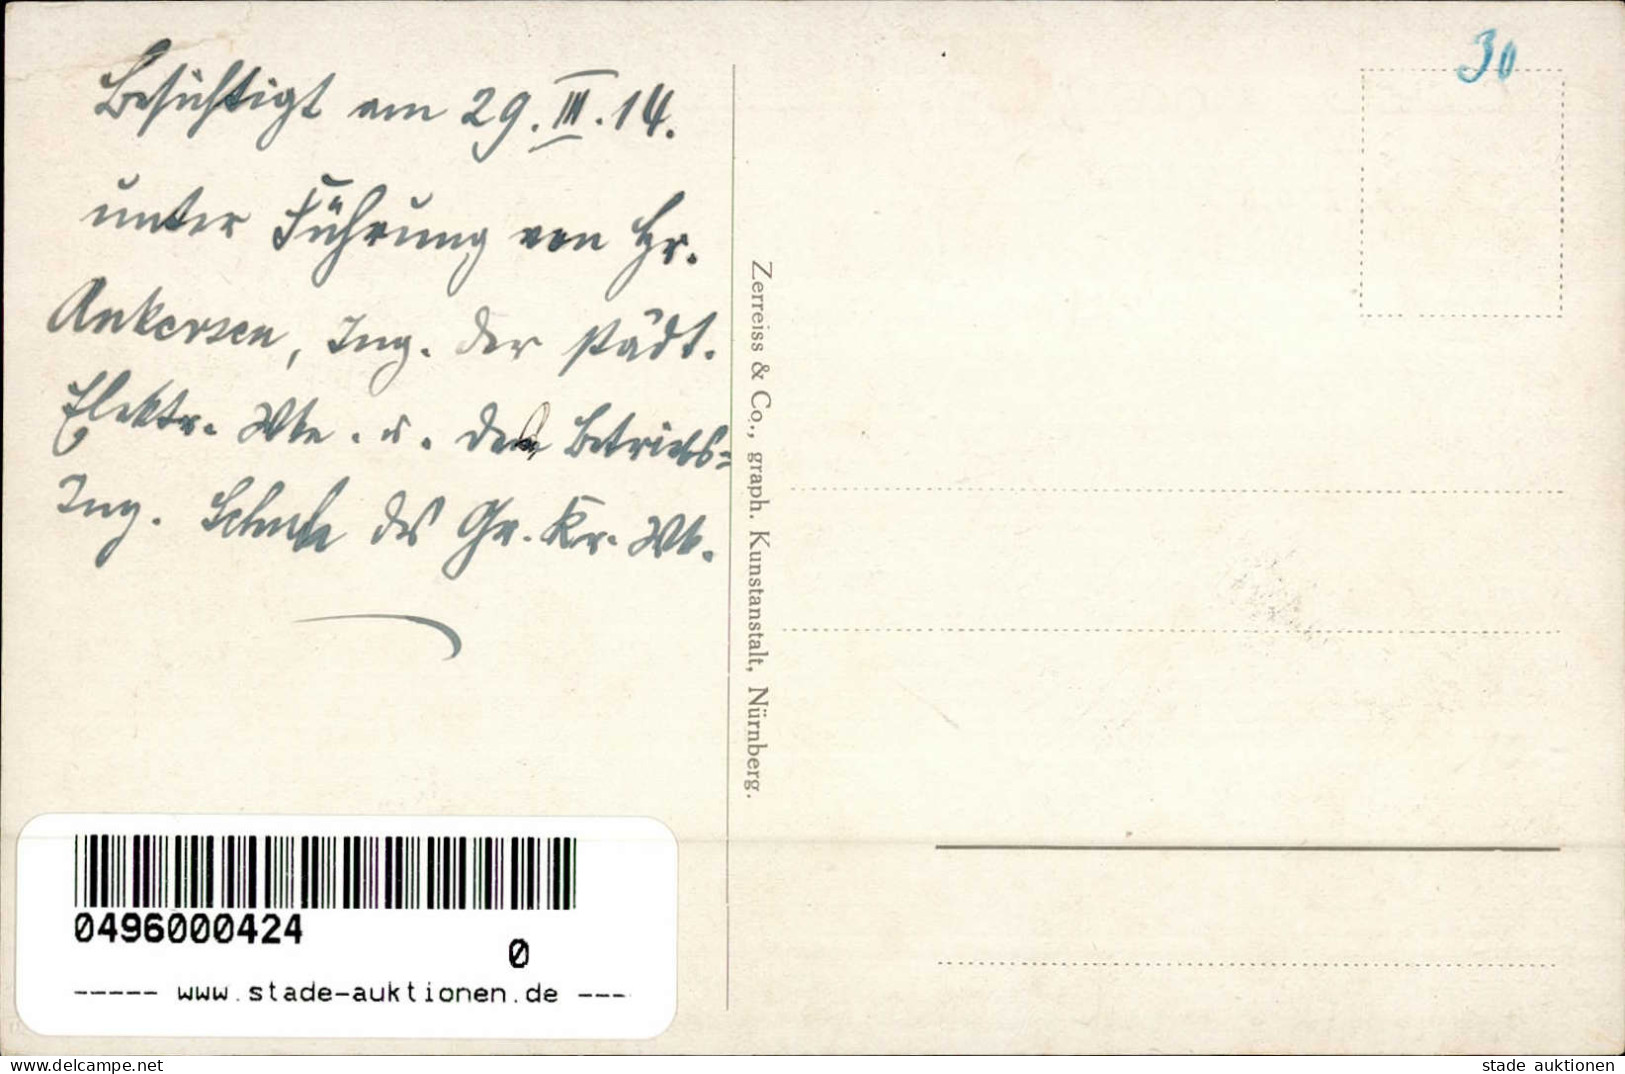 30
Besichtigt am 29. III. 14.
unter Führung von Hr.
Ankersen, Ing. der städt.
Elektr. Wke. u. des Betriebs=
Ing. des Gr. Kr. Wk.
Zerreiss & Co., graph. Kunstanstalt, Nürnberg.
0496000424
0
----- www.stade-auktionen.de ---
www.delcampe.net
stade auktionen